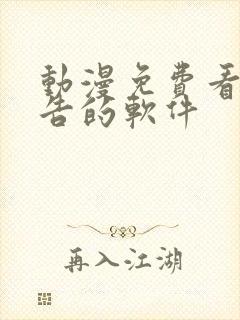 動漫免費看
告的軟件
再入江湖